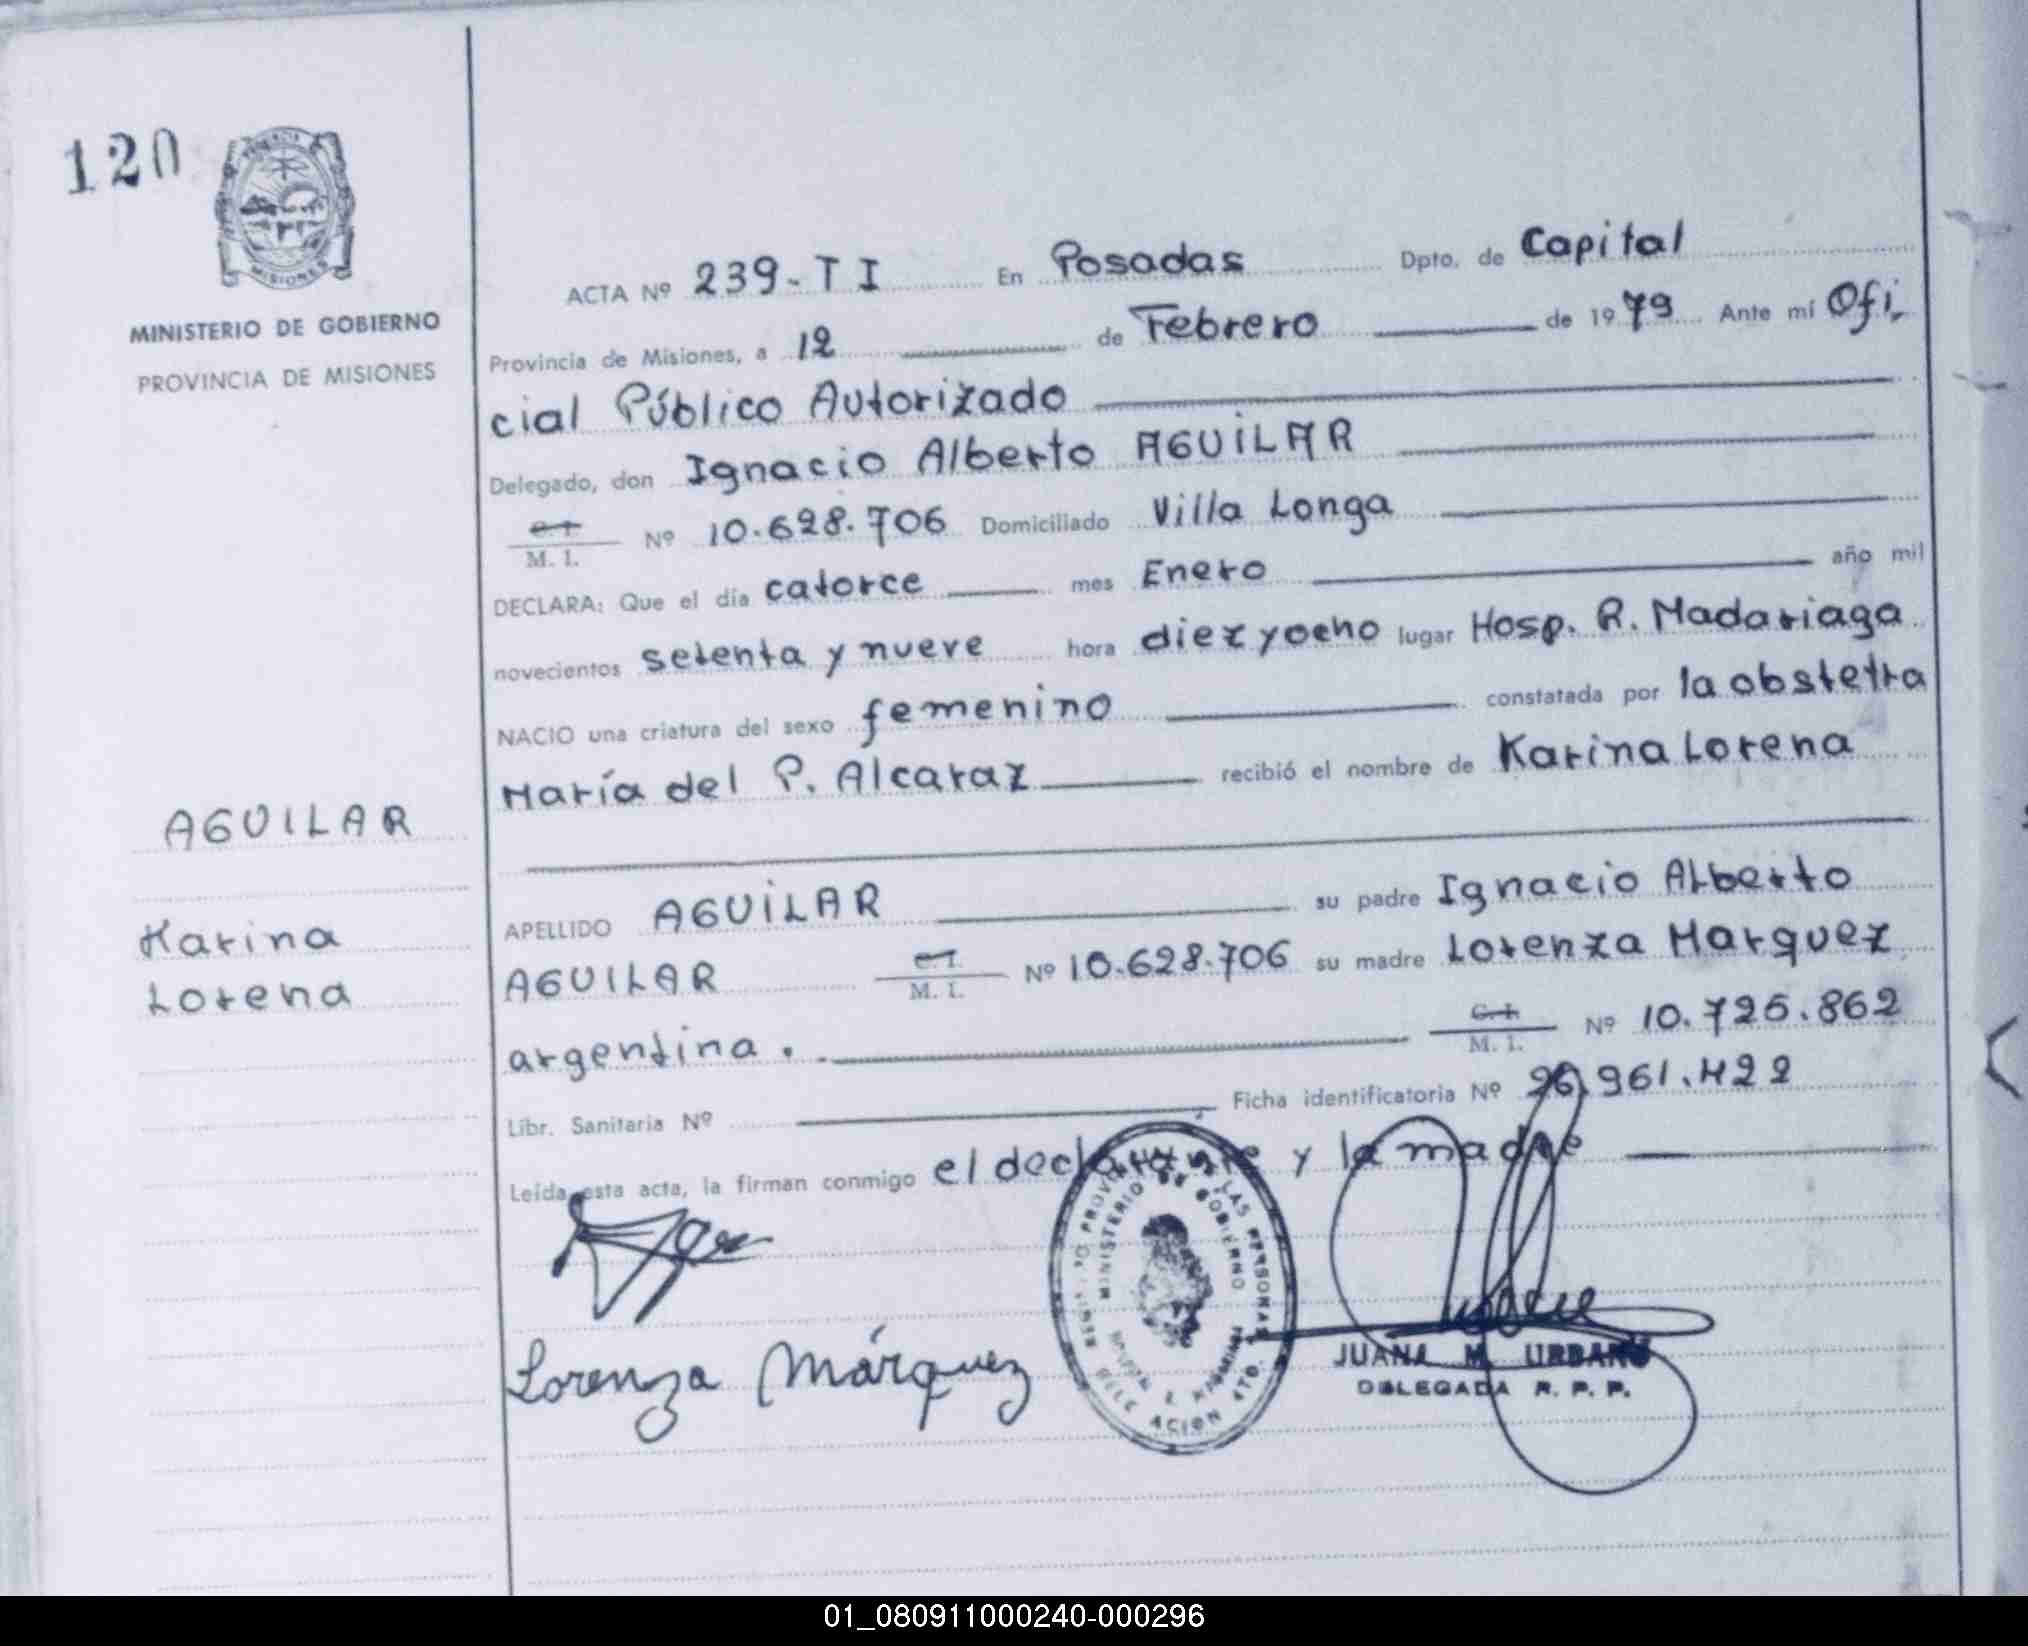 120
MINISTERIO DE GOBIERNO
PROVINCIA DE MISIONES
MISIONES
ACTA Nº 239-TI En Posadas Dpto. de Capital
Provincia de Misiones, a 12 de Febrero de 1979 Ante mí Ofi
cial Público Autorizado
Delegado, don Ignacio Alberto AGUILAR
C. I.
M. I. Nº 10.628.706 Domiciliado Villa Longa
DECLARA: Que el día catorce mes Enero año mil
novecientos setenta y nueve hora diez y ocho lugar Hosp. R. Madariaga
NACIO una criatura del sexo femenino constatada por la obstetra
María del P. Alcaraz recibió el nombre de Karina Lorena
AGUILAR
Karina
Lorena
APELLIDO AGUILAR su padre Ignacio Alberto
AGUILAR C. I. M. I. Nº 10.628.706 su madre Lorenza Marquez
argentina. C. I. M. I. Nº 10.725.862
Libr. Sanitaria Nº Ficha identificatoria Nº 26.961.422
Leída esta acta, la firman conmigo el declarante y la madre
Lorenza Márquez
MINISTERIO DE GOBIERNO
LAS PERSONAS
DELEGACION 4TO.
JUANA M. URBANO
DELEGADA R. P. P.
01_080911000240-000296